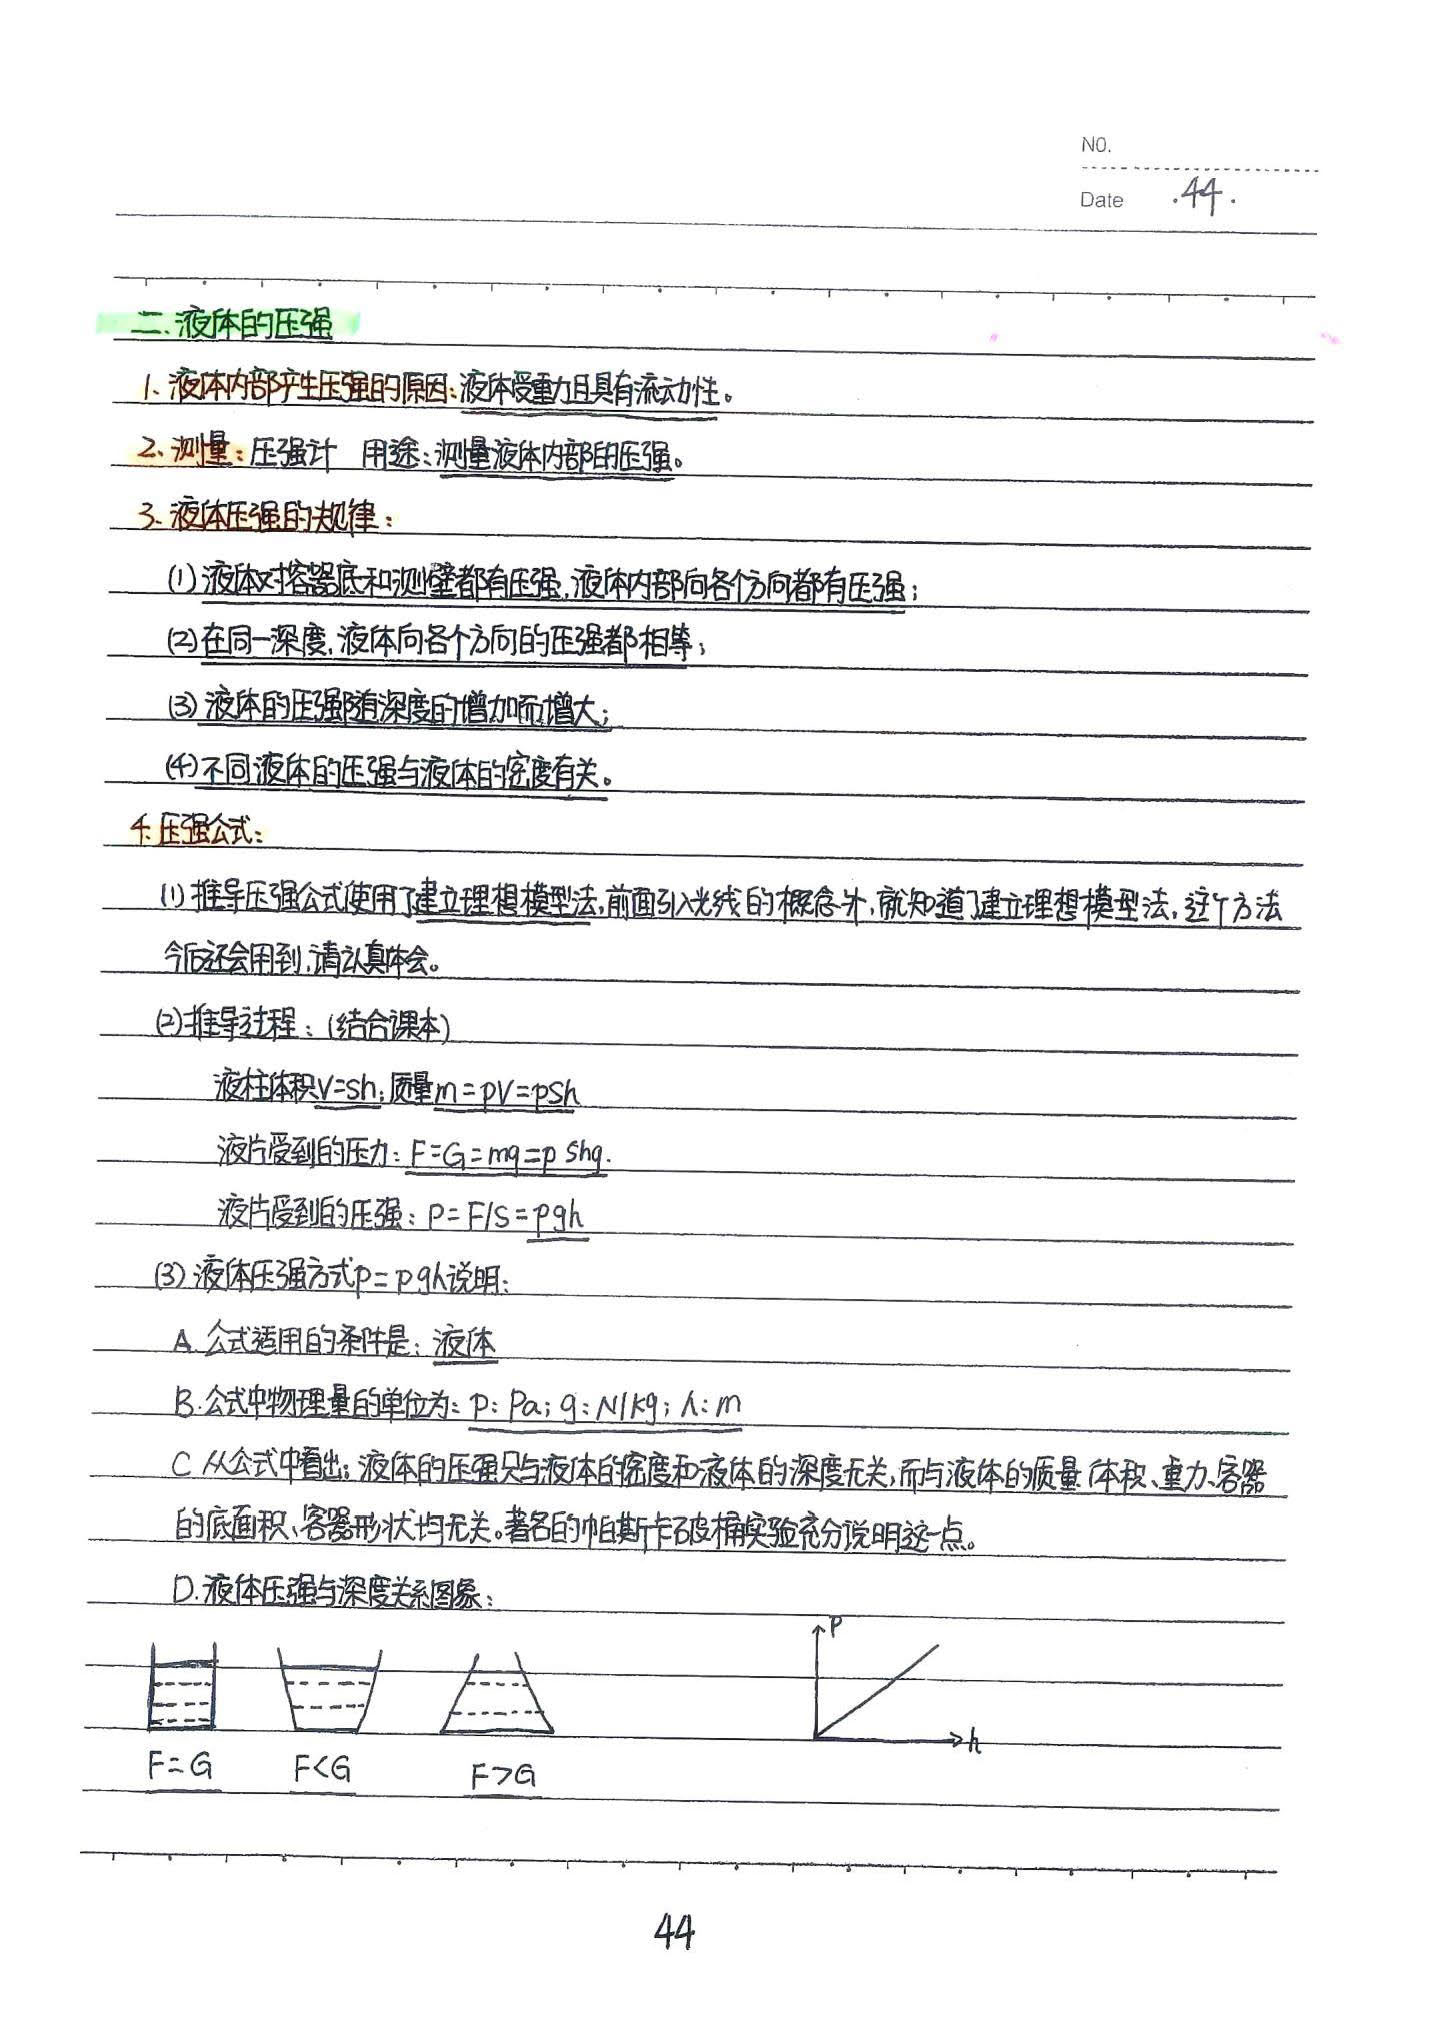 NO.
Date .44.
二.液体的压强
1、液体内部产生压强的原因:液体受重力且具有流动性。
2、测量:压强计 用途:测量液体内部的压强。
3、液体压强的规律:
(1)液体对容器底和测壁都有压强,液体内部向各个方向都有压强;
(2)在同一深度,液体向各个方向的压强都相等;
(3)液体的压强随深度的增加而增大;
(4)不同液体的压强与液体的密度有关。
4.压强公式:
(1)推导压强公式使用了建立理想模型法,前面引入光线的概念时,就知道了建立理想模型法,这个方法
今后还会用到,请认真体会。
(2)推导过程:(结合课本)
液柱体积V=Sh;质量m=ρV=ρSh
液片受到的压力:F=G=mg=ρShg.
液片受到的压强:P=F/S=ρgh
(3)液体压强方式p=ρgh说明:
A.公式适用的条件是:液体
B.公式中物理量的单位为:p:Pa;g:N/kg;h:m
C 从公式中看出:液体的压强只与液体的密度和液体的深度无关,而与液体的质量、体积、重力、容器
的底面积、容器形状均无关。著名的帕斯卡破桶实验充分说明这一点。
D.液体压强与深度关系图象:
P
h
F=G F<G F>G
44